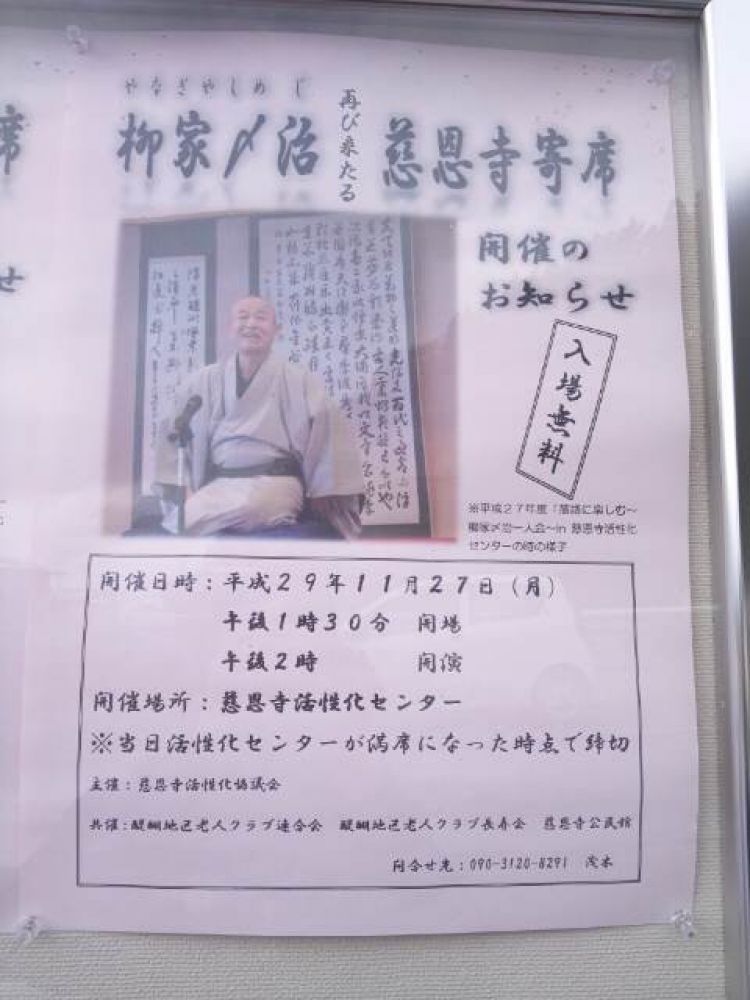 やなぎやしめじ
柳家〆治
再び来たる
慈恩寺寄席
開催の
お知らせ
入場無料
※平成27年度「落語に楽しむ～
柳家〆治一人会～in 慈恩寺活性化
センターの時の様子
開催日時：平成29年11月27日（月）
午後1時30分 開場
午後2時 開演
開催場所：慈恩寺活性化センター
※当日活性化センターが満席になった時点で締切
主催：慈恩寺活性化協議会
共催：醍醐地区老人クラブ連合会 醍醐地区老人クラブ長寿会 慈恩寺公民館
問合せ先：090-3120-8291 茂木
席
せ